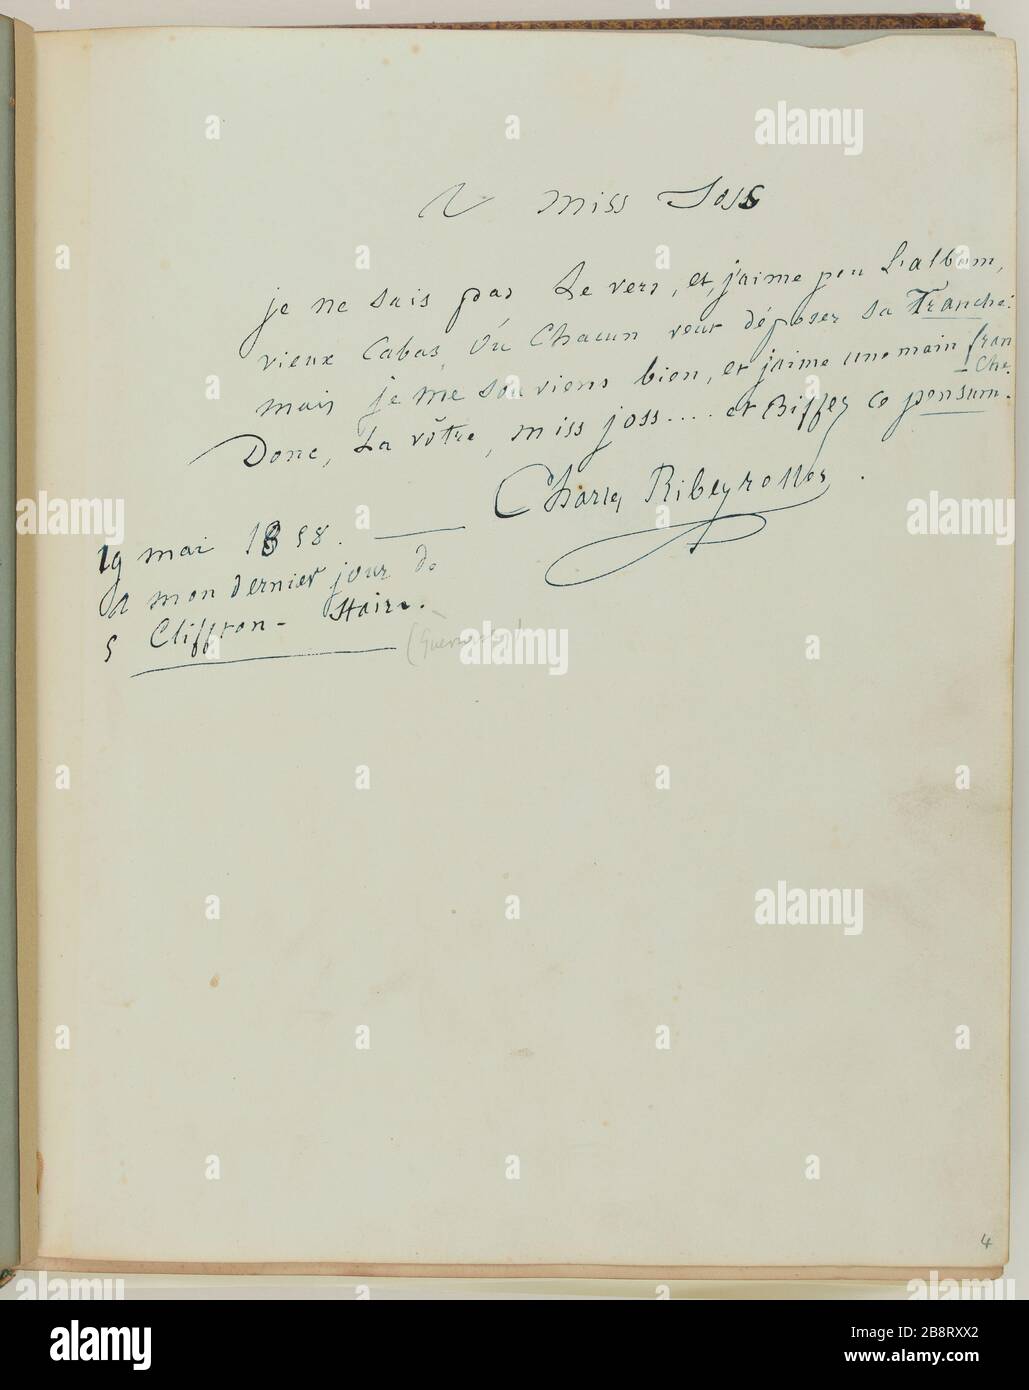 A miss Joss
je ne sais pas Le vers, et j'aime peu L'album,
vieux Cabas, où Chacun veut déposer sa Tranche:
mais je me souviens bien, et j'aime une main fran
che.
Donc, La vôtre, miss joss.... et Biffez ce pensum.
Charles Ribeyrolles.
19 mai 1858.
a mon dernier jour de
5 Cliffton - Staire.
(Guernesey)
4
alamy
Image ID: 2B8RXX2
www.alamy.com